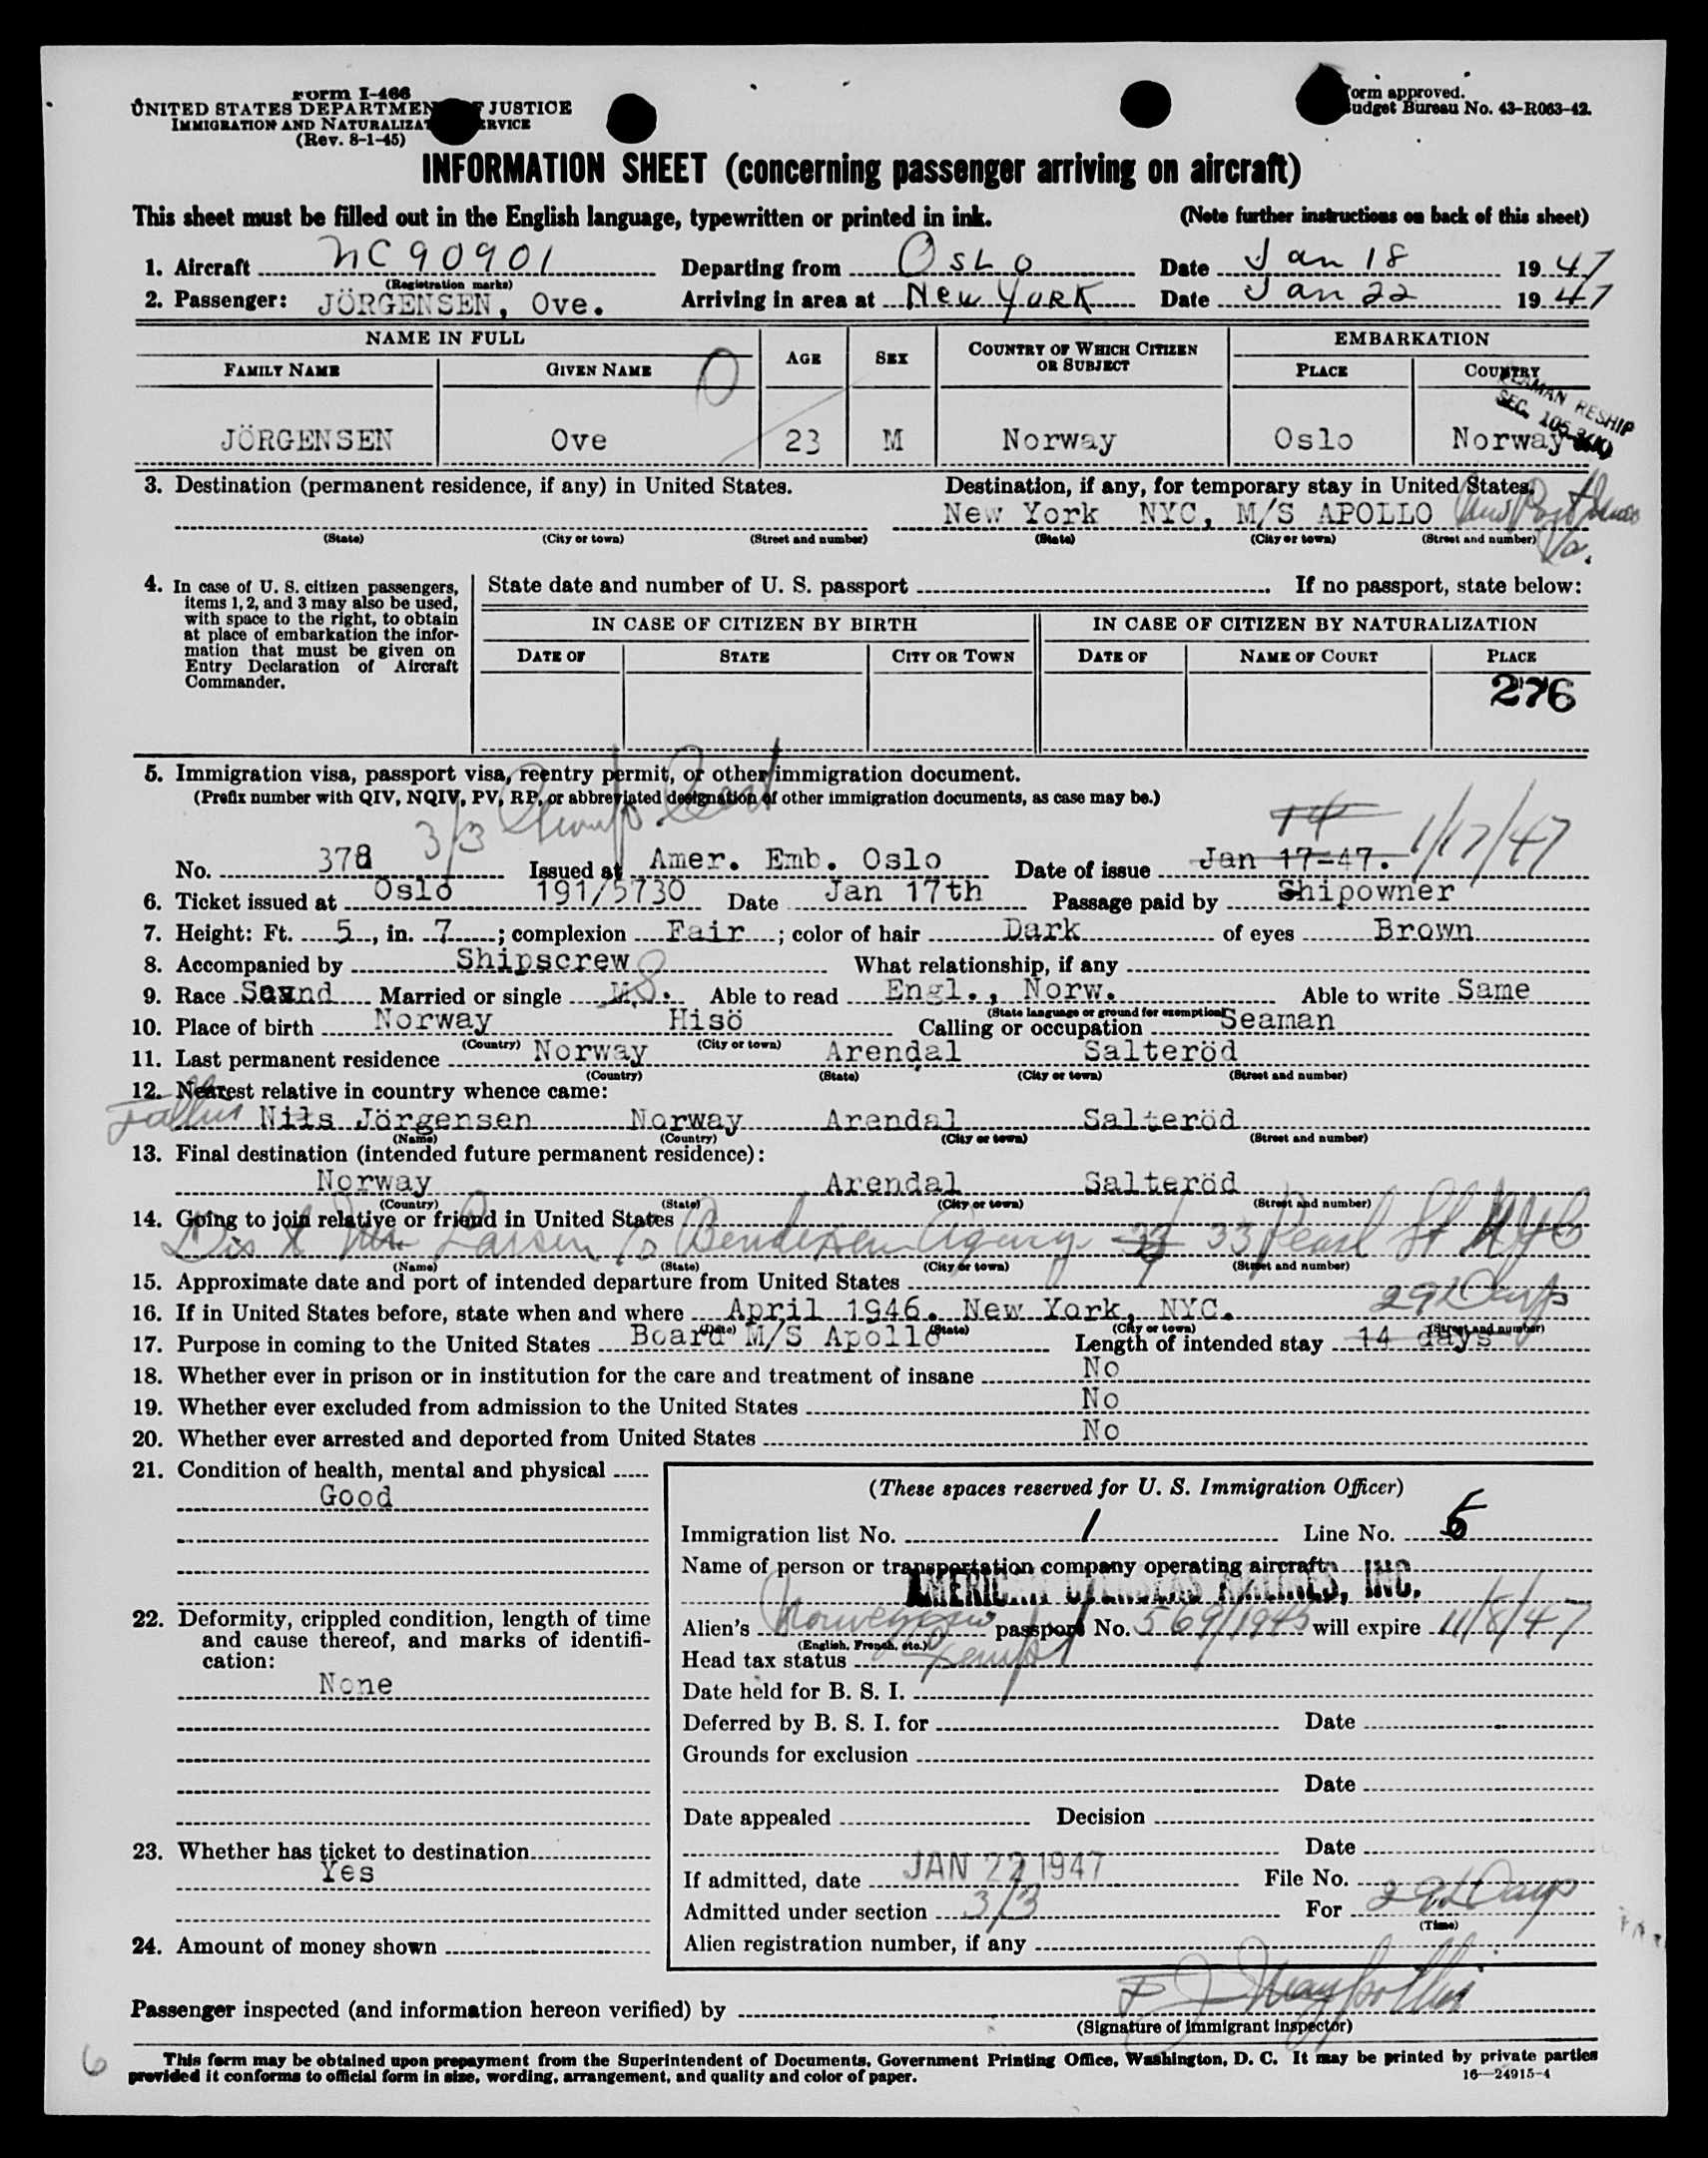 Form I-466
UNITED STATES DEPARTMENT OF JUSTICE
IMMIGRATION AND NATURALIZATION SERVICE
(Rev. 8-1-45)
Form approved.
Budget Bureau No. 43-R063-42.
INFORMATION SHEET (concerning passenger arriving on aircraft)
This sheet must be filled out in the English language, typewritten or printed in ink. (Note further instructions on back of this sheet)
1. Aircraft NC90901 Departing from OSLO Date Jan 18 1947
(Registration marks)
2. Passenger: JÖRGENSEN, Ove. Arriving in area at New YORK Date Jan 22 1947
NAME IN FULL AGE SEX COUNTRY OF WHICH CITIZEN OR SUBJECT EMBARKATION
FAMILY NAME GIVEN NAME PLACE COUNTRY
SEAMAN RESHIP
SEC. 105
JÖRGENSEN Ove 23 M Norway Oslo Norway
3. Destination (permanent residence, if any) in United States. Destination, if any, for temporary stay in United States.
New York NYC, M/S APOLLO
Va.
(State) (City or town) (Street and number) (State) (City or town) (Street and number)
4. In case of U. S. citizen passengers, items 1, 2, and 3 may also be used, with space to the right, to obtain at place of embarkation the information that must be given on Entry Declaration of Aircraft Commander.
State date and number of U. S. passport If no passport, state below:
IN CASE OF CITIZEN BY BIRTH IN CASE OF CITIZEN BY NATURALIZATION
DATE OF STATE CITY OR TOWN DATE OF NAME OF COURT PLACE
276
5. Immigration visa, passport visa, reentry permit, or other immigration document.
(Prefix number with QIV, NQIV, PV, RP, or abbreviated designation of other immigration documents, as case may be.)
3/3
14 1/17/47
No. 378 Issued at Amer. Emb. Oslo Date of issue Jan 17-47.
6. Ticket issued at Oslo 191/5730 Date Jan 17th Passage paid by Shipowner
7. Height: Ft. 5, in. 7; complexion Fair; color of hair Dark of eyes Brown
8. Accompanied by Shipscrew What relationship, if any
9. Race Scand Married or single S Able to read Engl., Norw. Able to write Same
(State language or ground for exemption)
10. Place of birth Norway Hisö Calling or occupation Seaman
(Country) (City or town)
11. Last permanent residence Norway Arendal Salteröd
(Country) (State) (City or town) (Street and number)
12. Nearest relative in country whence came:
Father Nils Jörgensen Norway Arendal Salteröd
(Name) (Country) (City or town) (Street and number)
13. Final destination (intended future permanent residence):
Norway Arendal Salteröd
(Country) (State) (City or town) (Street and number)
14. Going to join relative or friend in United States
Larsen c/o Bendixen Agency 33 Pearl St NYC
(Name) (State) (City or town) (Street and number)
15. Approximate date and port of intended departure from United States
29 Days
16. If in United States before, state when and where April 1946. New York, NYC.
(Date) (State) (City or town) (Street and number)
17. Purpose in coming to the United States Board M/S Apollo Length of intended stay 14 days
18. Whether ever in prison or in institution for the care and treatment of insane No
19. Whether ever excluded from admission to the United States No
20. Whether ever arrested and deported from United States No
21. Condition of health, mental and physical
Good
22. Deformity, crippled condition, length of time and cause thereof, and marks of identification:
None
23. Whether has ticket to destination
Yes
24. Amount of money shown
(These spaces reserved for U. S. Immigration Officer)
Immigration list No. 1 Line No. 5
Name of person or transportation company operating aircraft
AMERICAN OVERSEAS AIRLINES, INC.
Alien's Norwegian passport No. 569/1945 will expire 11/8/47
(English, French, etc.)
Head tax status Exempt
Date held for B. S. I.
Deferred by B. S. I. for Date
Grounds for exclusion
Date
Date appealed Decision
Date
If admitted, date JAN 22 1947 File No.
Admitted under section 3/3 For 29 Days
(Time)
Alien registration number, if any
Passenger inspected (and information hereon verified) by
(Signature of immigrant inspector)
6
This form may be obtained upon prepayment from the Superintendent of Documents, Government Printing Office, Washington, D. C. It may be printed by private parties
provided it conforms to official form in size, wording, arrangement, and quality and color of paper.
16—24915-4